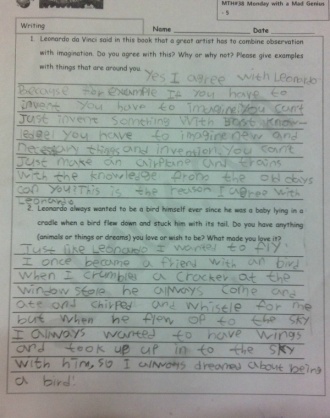 MTH#38 Monday with a Mad Genius
- 5
Writing
Name Date
1. Leonardo da Vinci said in this book that a great artist has to combine observation
with imagination. Do you agree with this? Why or why not? Please give examples
with things that are around you.
Yes I agree with Leonardo
Because for example If you have to
invent you have to imagine you can't
Just invent something with
you have to imagine new and
necessary things and invention, you can't
Just make an airplane and trains
with the knowledge from the old days
can you? This is the reason I agree with
Leonardo
2. Leonardo always wanted to be a bird himself ever since he was a baby lying in a
cradle when a bird flew down and stuck him with its tail. Do you have anything
(animals or things or dreams) you love or wish to be? What made you love it?
Just like Leonardo I wanted to fly.
I once became a friend with an bird
when I crumbles a cracker at the
window he always come and
ate and chirped and whistle for me
but when he flew op to the sky
I always wanted to have wings
and took up up in to the sky
with him, so I always dreamed about being
a bird.